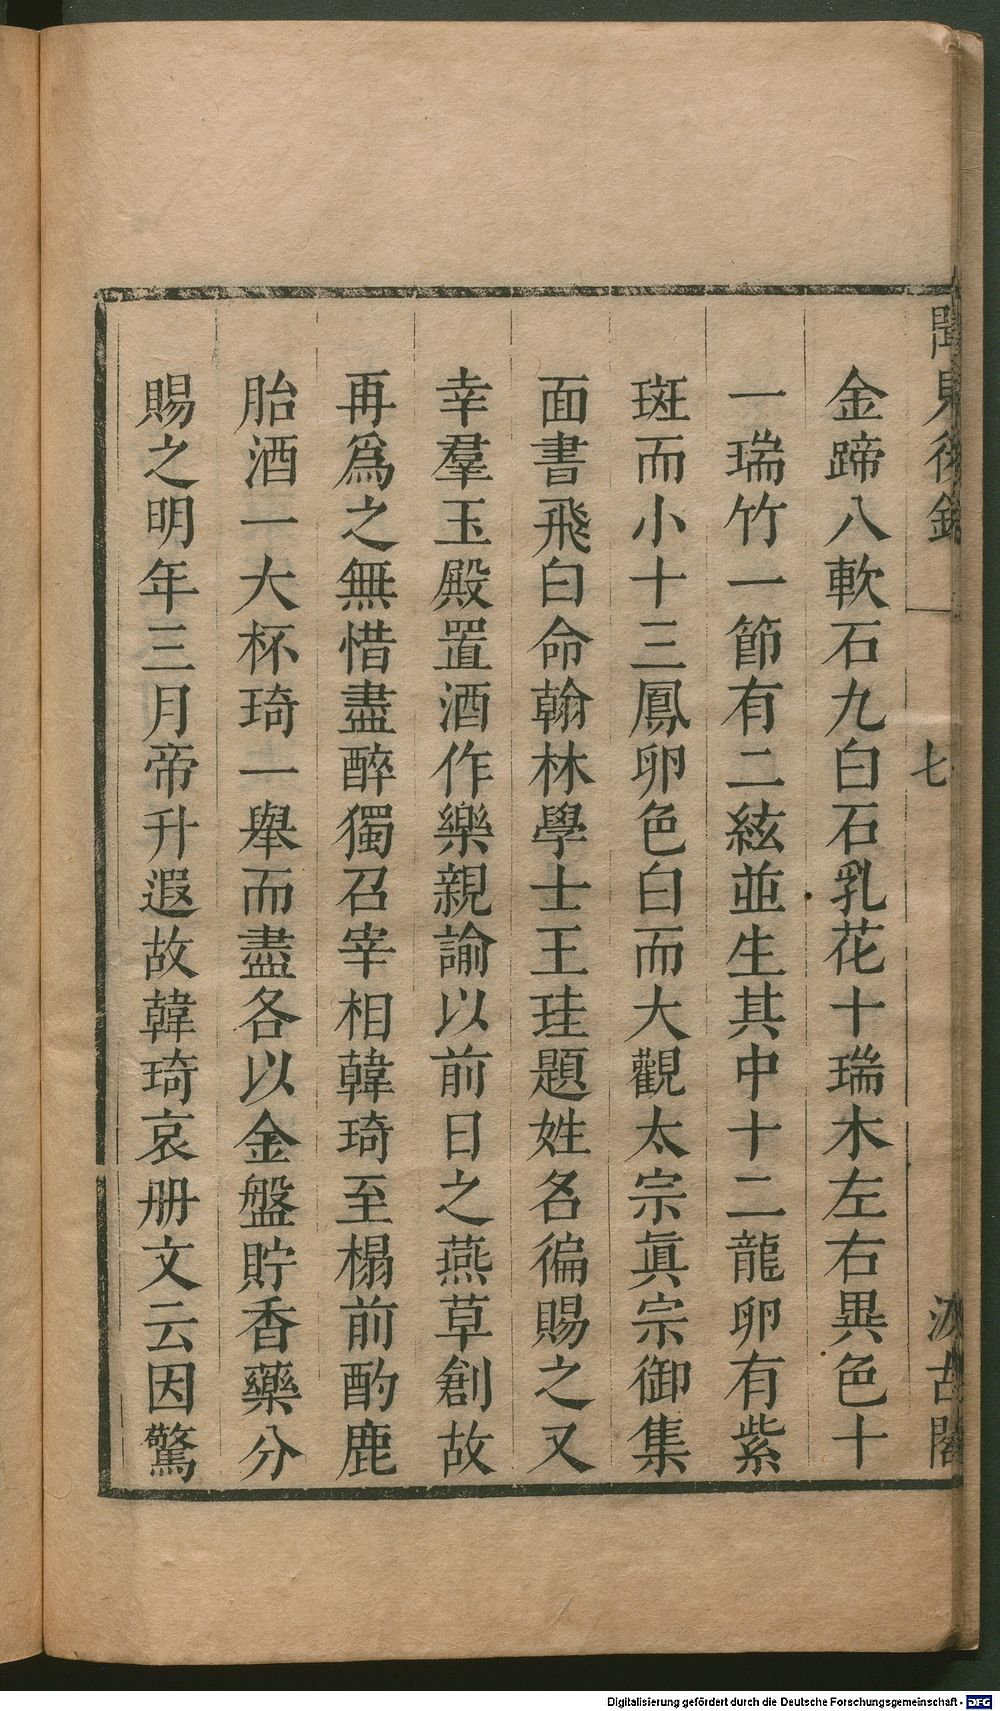 聞見後錄
七
汲古閣
金蹄八軟石九白石乳花十瑞木左右異色十
一瑞竹一節有二絃並生其中十二龍卵有紫
斑而小十三鳳卵色白而大觀太宗眞宗御集
面書飛白命翰林學士王珪題姓名徧賜之又
幸羣玉殿置酒作樂親諭以前日之燕草創故
再爲之無惜盡醉獨召宰相韓琦至榻前酌鹿
胎酒一大杯琦一舉而盡各以金盤貯香藥分
賜之明年三月帝升遐故韓琦哀册文云因驚
Digitalisierung gefördert durch die Deutsche Forschungsgemeinschaft - DFG